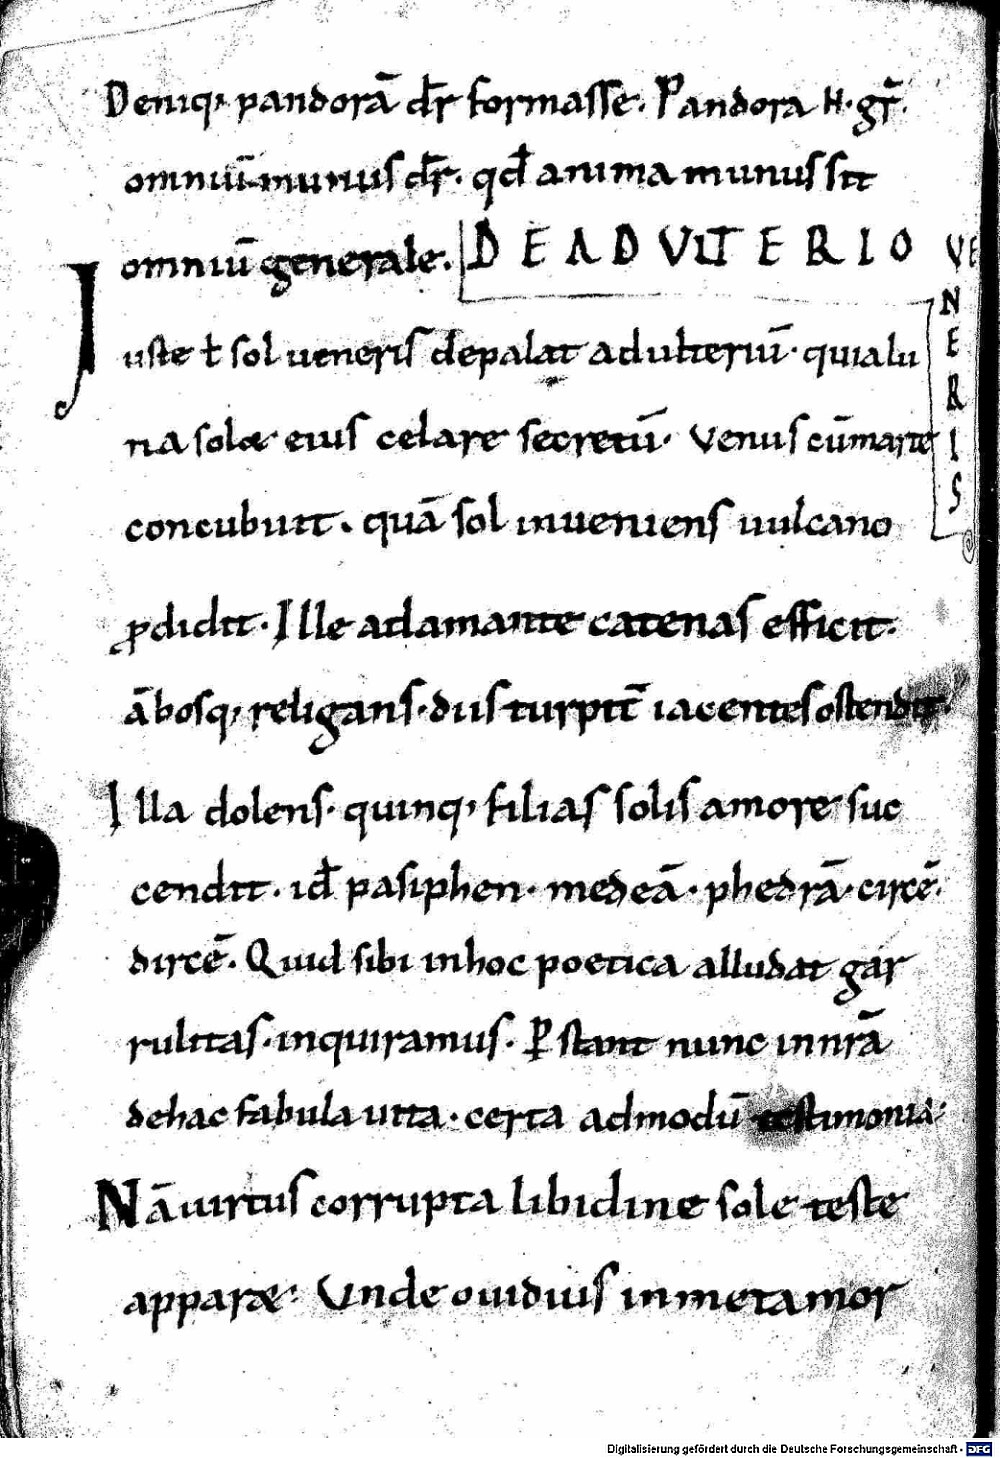 Deniq; pandorā dr̄ formasse. Pandora H. gr̄.
omniū munus dr̄. qđ anima munus sit
omniū generale. DE ADVLTERIO VE
NERIS
Iuste ł sol ueneris depalat adulteriū. quia lu
na solæ eius celare secretū. Venus cū marte
concubuit. quā sol inueniens uulcano
ꝓdidit. Ille adamante catenas efficit.
ābosq; religans. diis turpit̄ iacentes ostendit.
Illa dolens. quinq; filias solis amore suc
cendit. id̄ pasiphen. medeā. phedrā. circē.
dircē. Quid sibi in hoc poetica alludat gar
rulitas. inquiramus. ꝑstant nunc in nrā
de hac fabula uita. certa admodū testimonia.
Nā uirtus corrupta libidine sole teste
apparæ. Vnde ouidius in metamor
Digitalisierung gefördert durch die Deutsche Forschungsgemeinschaft - DFG